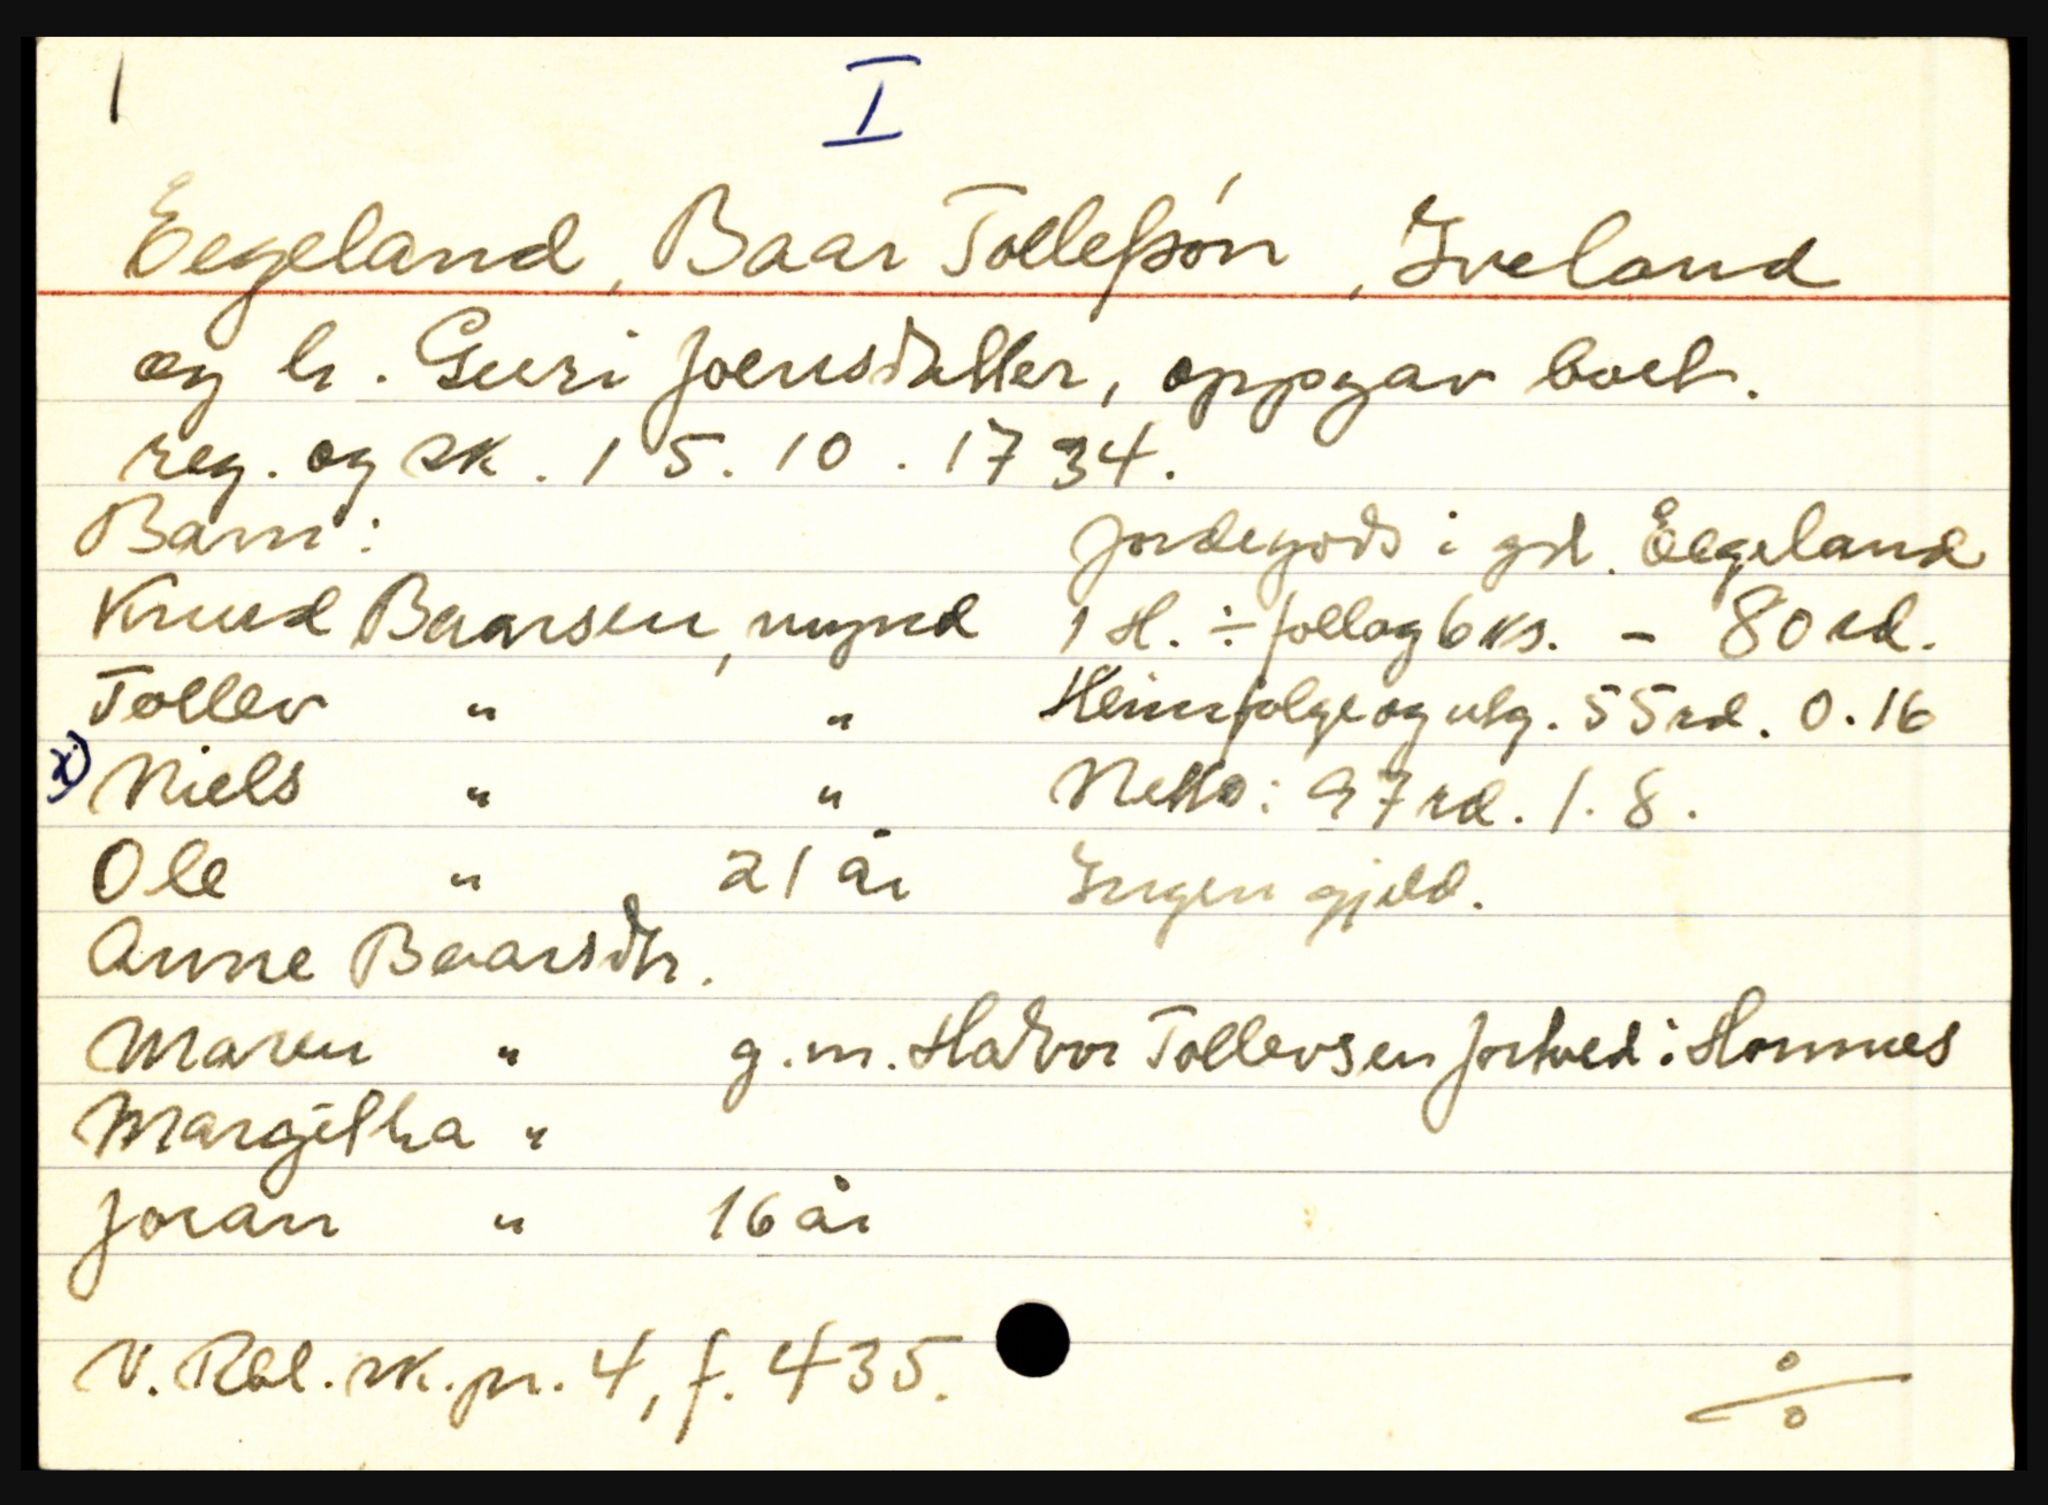 1
I
Eegeland, Baar Tollefsøn, Iveland
og h. Guri Joensdatter, oppgav boet.
reg. og sk. 15.10.1734.
Barn:
Jordegods i gd. Eegeland
Knud Baarsen, mynd
1 H. ÷ follog 6 ks. - 80 rd.
Tollev " "
Heimfølge og utg. 55 rd. 0.16
x) Niels " "
Netto: 97 rd. 1. 8.
Ole " 21 år
Ingen gjeld.
Anne Baarsdtr.
Maren " g.m. Halvor Tollevsen Jortved i Hornnes
Margitha "
Joran " 16 år
V. Rbl. sk.pr. 4, f. 435.